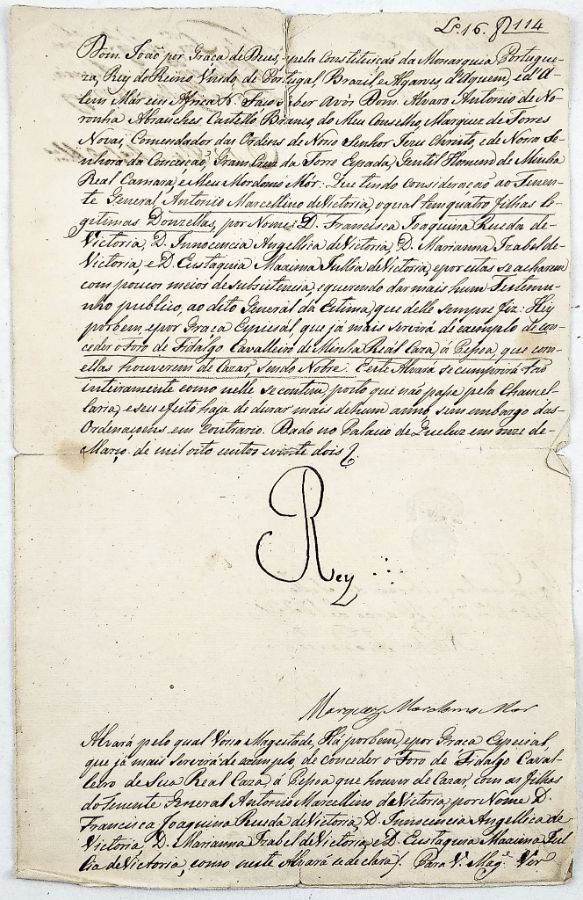 L.º 16. f 114
Dom João por Graça de Deus, e pela Constituição da Monarquia Portugue-
za, Rey do Reino Unido de Portugal, Brazil e Algarves d'aquem, e d'a-
lem Mar em Africa &. Faço saber a vós Dom Alvaro Antonio de No-
ronha Abranches Castello Branco, do Meu Conselho, Marquez de Torres
Novas, Comendador das Ordens de Nosso Senhor Jezus Christo, e de Nossa Se-
nhora da Conceição, Gram Cruz da Torre Espada, Gentil Homem de Minha
Real Camara, e Meu Mordomo Mór: Que tendo Consideração ao Tenen-
te General Antonio Marcellino de Victoria, o qual tem quatro filhas le-
gitimas Donzellas, por Nomes D. Francisca Joaquina Rueda de-
Victoria, D. Innocencia Angellica de Victoria, D. Marianna Izabel de-
Victoria, e D. Eustaquia Maxima Jullia de Victoria, e por estas se acharem
com poucos meios de subsistencia, e querendo dar mais hum Testemu-
nho publico, ao dito General da Estima, que delle sempre fiz: Hey
por bem, e por Graça Especial, que já mais servirá de exemplo, de con-
ceder o Foro de Fidalgo Cavalleiro de Minha Real Caza, á Pessoa, que com
ellas houverem de Cazar, sendo Nobre. E este Alvará se cumprirá tão
inteiramente como nelle se contem, posto que não passe pela Chancel-
laria, e seu efeito haja de durar mais de hum anno, sem embargo das-
Ordenaçoens em contrario. Dado no Palacio de Queluz em onze de-
Março de mil oito centos e vinte dois
Rey
Marquez Mordomo Mor
Alvará pelo qual Vossa Magestade, Há por bem, e por Graça Especial,
que já mais servirá de exemplo, de conceder o Foro de Fidalgo Caval-
leiro de Sua Real Caza, á Pessoa que houver de Cazar, com as filhas
do Tenente General Antonio Marcellino de Victoria, por Nome D.
Francisca Joaquina Rueda de Victoria, D. Innocencia Angellica de
Victoria, D. Marianna Izabel de Victoria, e D. Eustaquia Maxima Jul-
lia de Victoria, como neste Alvará se declara. Para V. Mag.e Ver